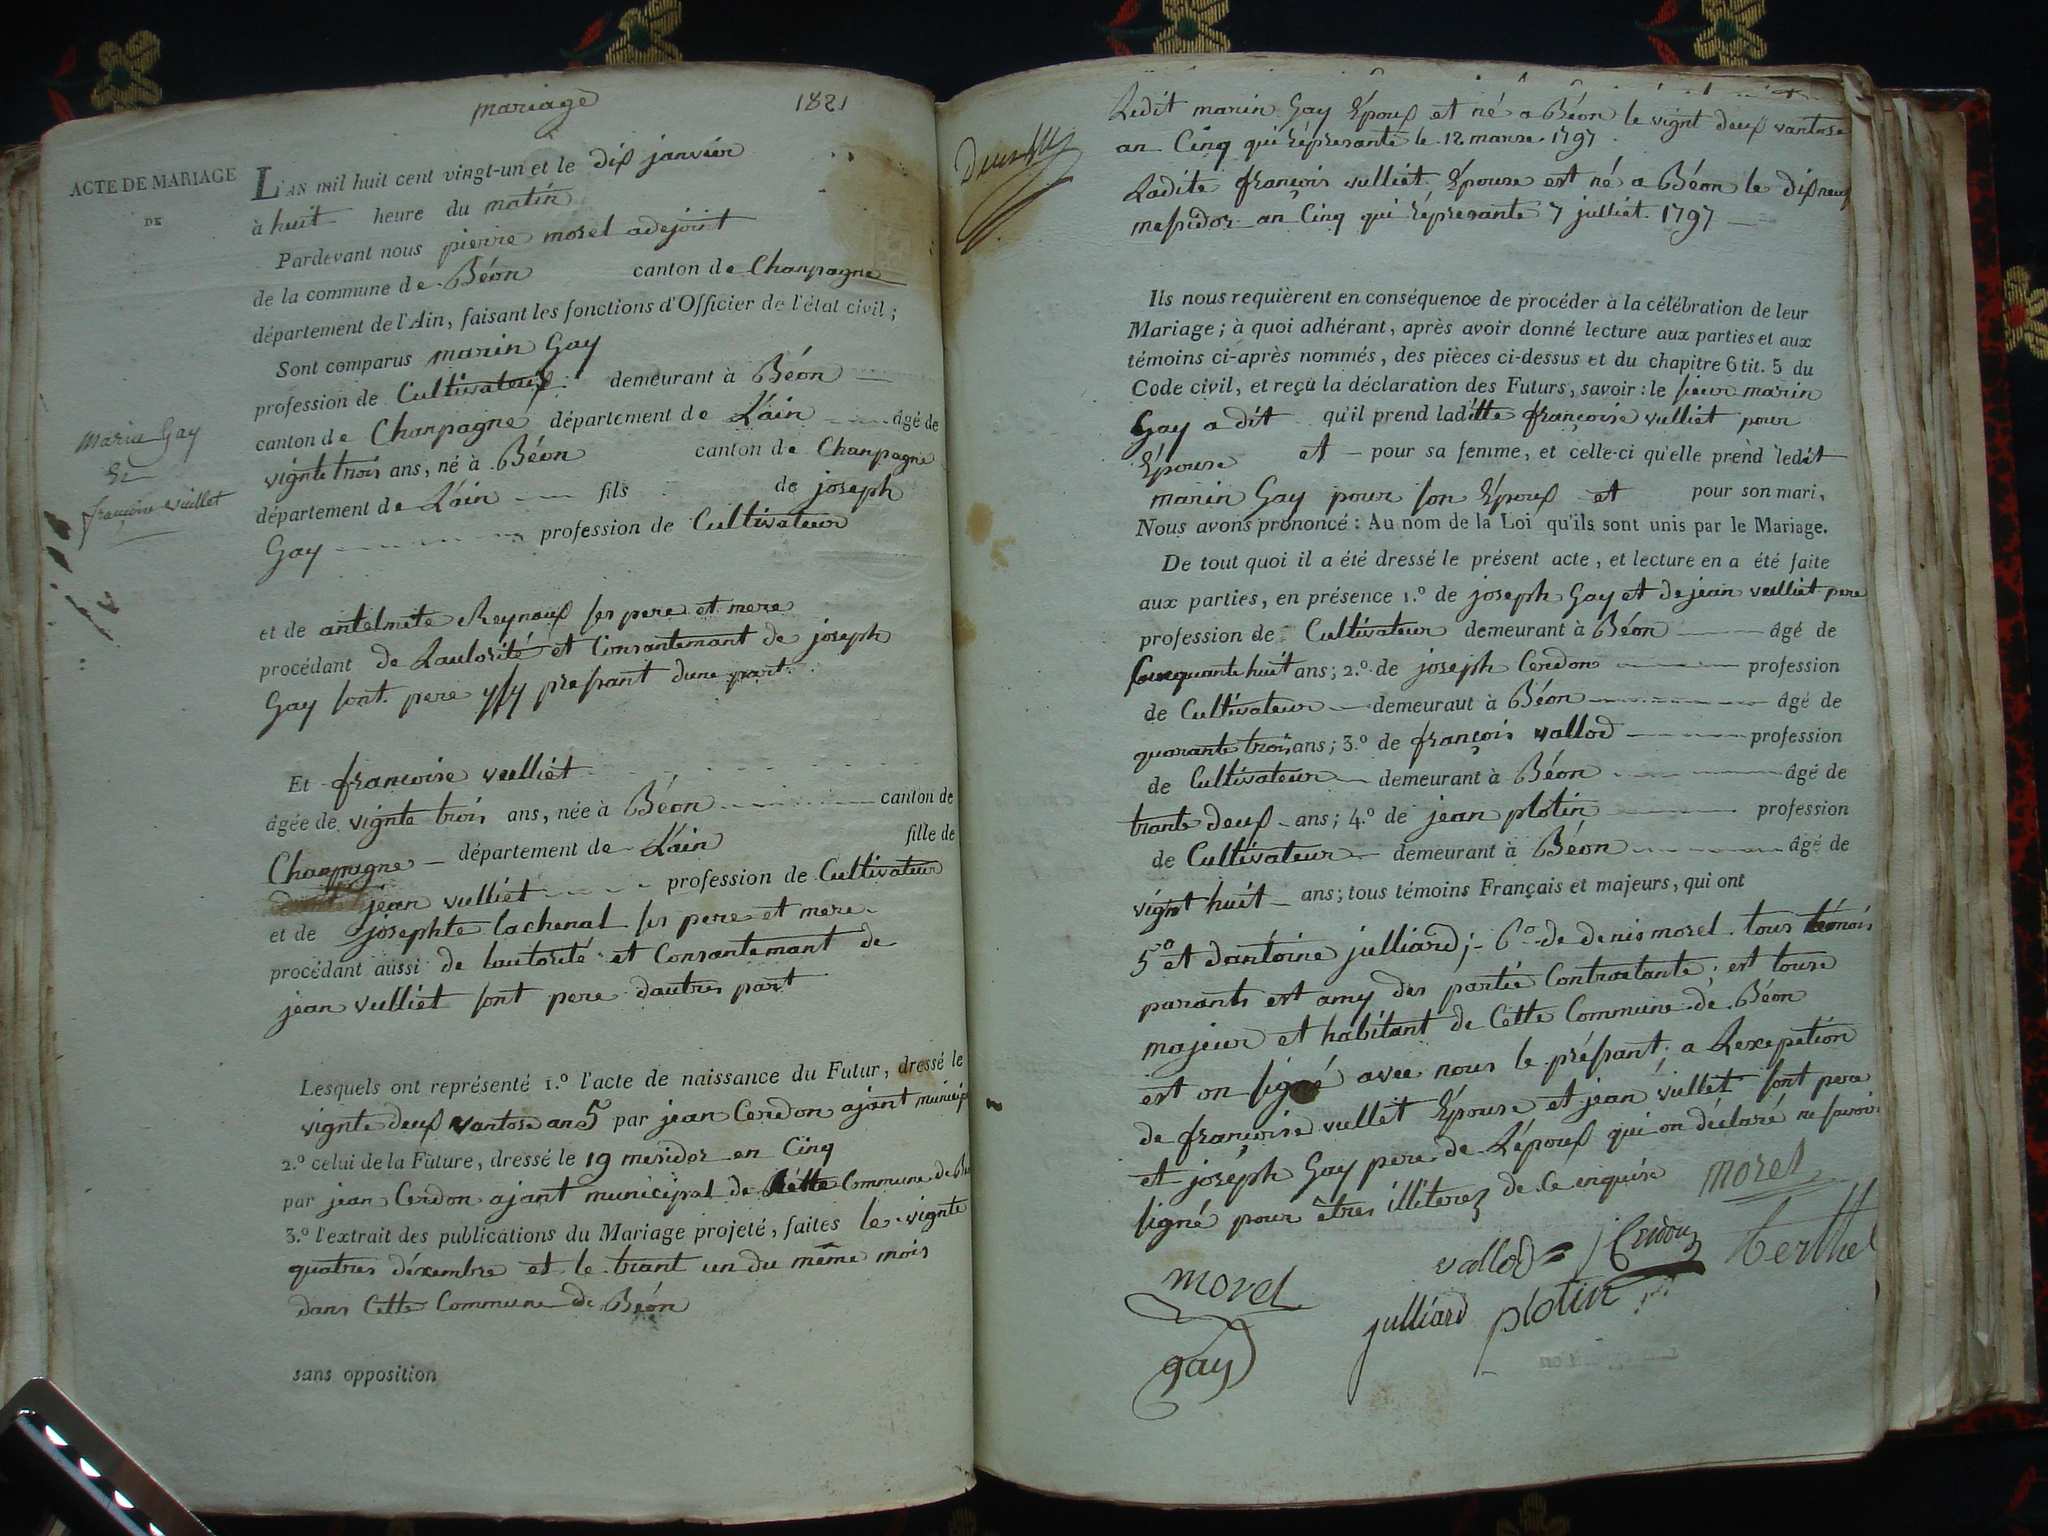 mariage 1821
ACTE DE MARIAGE
DE
marin Gay
Et
françoise vuillet
L'AN mil huit cent vingt-un et le dix janvier
à huit heure du matin
Pardevant nous pierre morel adejoint
de la commune de Béon canton de Chanpagne
département de l'Ain, faisant les fonctions d'Officier de l'état civil;
Sont comparus marin Gay
profession de Cultivateur demeurant à Béon
canton de Chanpagne département de L'ain âgé de
vignte trois ans, né à Béon canton de Chanpagne
département de L'ain fils de joseph
Gay profession de Cultivateur
et de antelmete Reynaux ses pere et mere
procédant de Lautorité et Consantemant de joseph
Gay sont pere ysy presant dune part
Et francoise vulliet
âgée de vignte trois ans, née à Béon canton de
Chanpagne département de L'ain fille de
jean vulliet profession de Cultivateur
et de josephte lachenal ses pere et mere
procédant aussi de lautorité et Consantemant de
jean vulliet sont pere dautres part
Lesquels ont représenté 1.º l'acte de naissance du Futur, dressé le
vignte deux vantose an 5 par jean Cerdon ajant municip
2.º celui de la Future, dressé le 19 mesidor en Cinq
par jean Cerdon ajant municipal de Cette Commune de Bé
3.º l'extrait des publications du Mariage projeté, faites le vignte
quatres déxembre et le trant un du même mois
dans Cette Commune de Béon
sans opposition
Ledit marin Gay Époux et né a Béon le vignt deux vantose
an Cinq qui réprésante le 12 marse 1797
Ladite françois vulliet Épouse est né a Béon le dix neuf
mesidor an Cinq qui réprésante 7 julliet 1797
Ils nous requièrent en conséquence de procéder à la célébration de leur
Mariage; à quoi adhérant, après avoir donné lecture aux parties et aux
témoins ci-après nommés, des pièces ci-dessus et du chapitre 6 tit. 5 du
Code civil, et reçu la déclaration des Futurs, savoir: le sieur marin
Gay a dit qu'il prend laditte françoise vulliet pour
Épouse et pour sa femme, et celle-ci qu'elle prend ledit
marin Gay pour son Époux et pour son mari,
Nous avons prononcé: Au nom de la Loi qu'ils sont unis par le Mariage.
De tout quoi il a été dressé le présent acte, et lecture en a été faite
aux parties, en présence 1.º de joseph Gay et de jean vulliet pere
profession de Cultivateur demeurant à Béon âgé de
Cinquante huit ans; 2.º de joseph Cerdon profession
de Cultivateur demeuraut à Béon âgé de
quarante trois ans; 3.º de françois vallod profession
de Cultivateur demeurant à Béon âgé de
trante deux ans; 4.º de jean plotin profession
de Cultivateur demeurant à Béon âgé de
vignt huit ans; tous témoins Français et majeurs, qui ont
5º et dantoine julliard; 6º de denis morel tous témois
parants est amy des partie Contractante; est touse
majeur et habitant de Cette Commune de Béon
est on signé avec nous le présant a Lexepétion
de françoise vullet Épouse et jean vullet sont pere
et joseph Gay pere de L'époux qui on déclaré ne savoir
signé pour êtres illiterez de Ce enquise morel
vallod J Cerdon Berthet
morel julliard plotin
gay